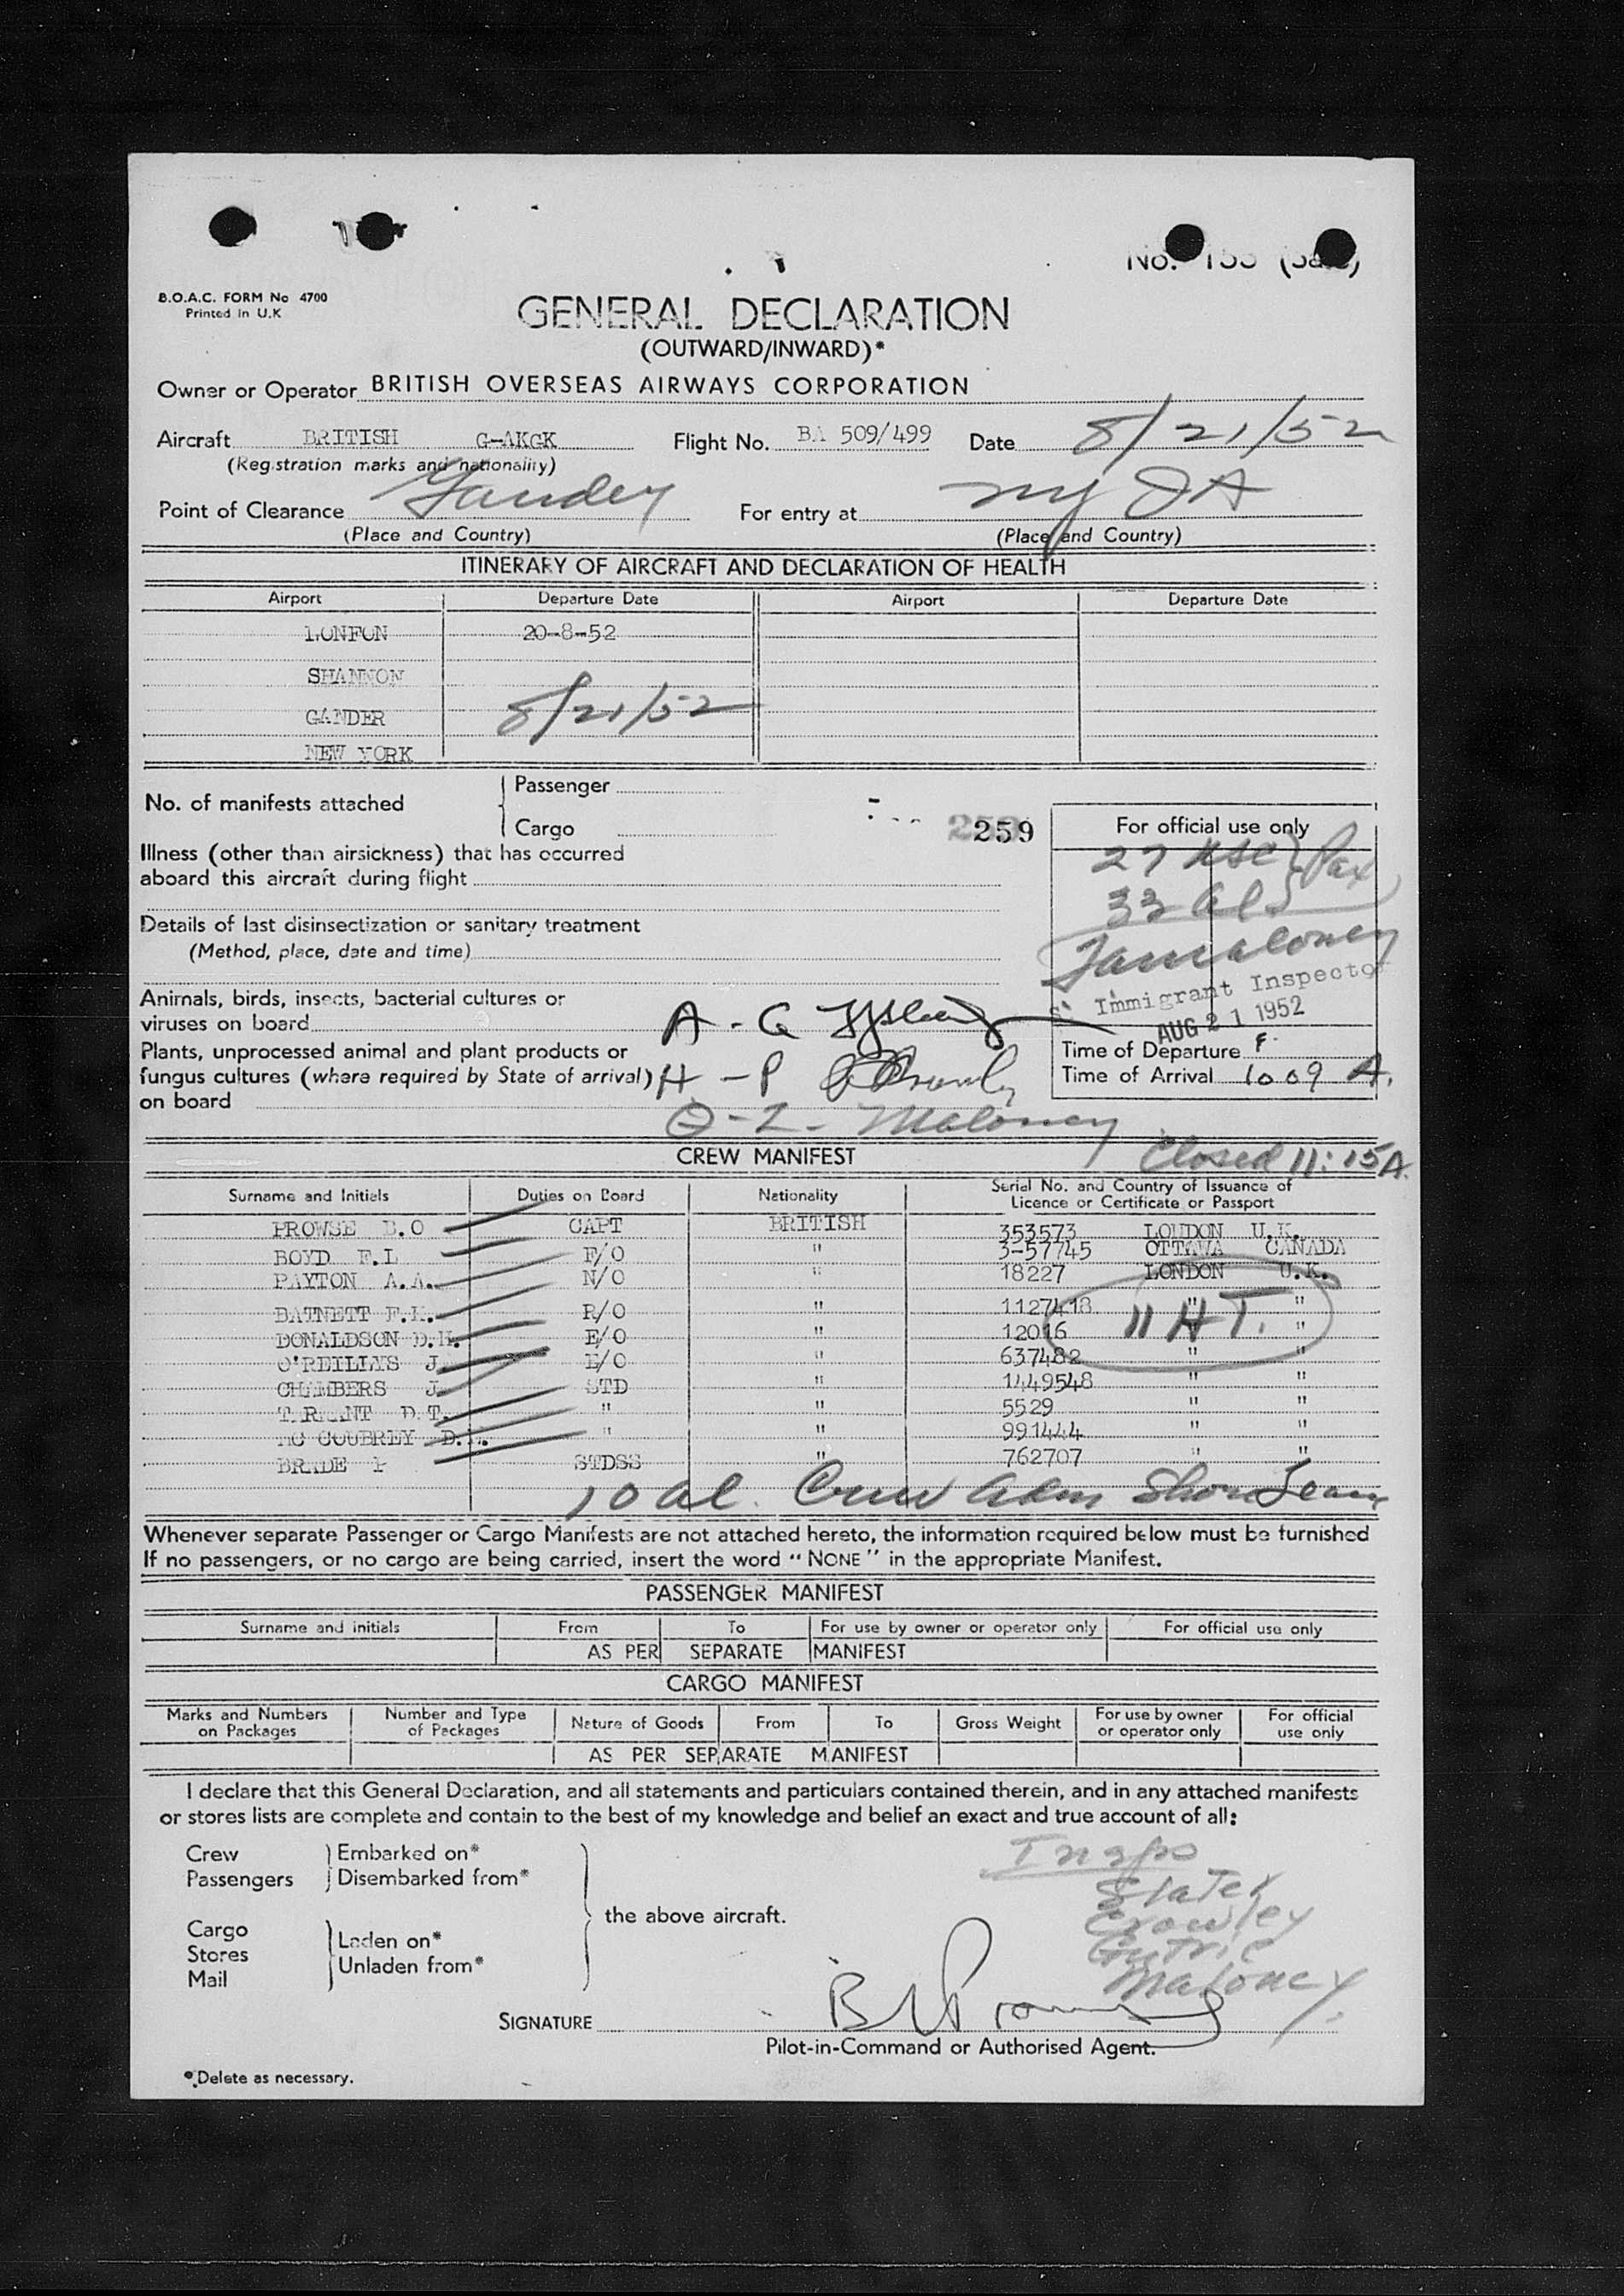 B.O.A.C. FORM No 4700
Printed in U.K
No.
GENERAL DECLARATION
(OUTWARD/INWARD)*
Owner or Operator BRITISH OVERSEAS AIRWAYS CORPORATION
Aircraft BRITISH G-AKGK Flight No. BA 509/499 Date 8/21/52
(Registration marks and nationality)
Point of Clearance Gander For entry at NY
(Place and Country) (Place and Country)
ITINERARY OF AIRCRAFT AND DECLARATION OF HEALTH
Airport Departure Date Airport Departure Date
LONFON 20-8-52
SHANNON
GANDER 8/21/52
NEW YORK
No. of manifests attached
Passenger
Cargo
259
For official use only
27 USC } Pax
33 Al
Illness (other than airsickness) that has occurred
aboard this aircraft during flight
Details of last disinsectization or sanitary treatment
(Method, place, date and time)
Maloney
Immigrant Inspector
AUG 21 1952
Animals, birds, insects, bacterial cultures or
viruses on board
A - Q
Plants, unprocessed animal and plant products or
fungus cultures (where required by State of arrival)
on board
H - P
Q-Z - Maloney
Time of Departure
Time of Arrival 1009 A.
CREW MANIFEST
Closed 11:15A.
Surname and Initials Duties on Board Nationality Serial No. and Country of Issuance of
Licence or Certificate or Passport
PROWSE B.O CAPT BRITISH 353573 LONDON U.K.
BOYD F.L F/O " 3-57745 OTTAWA CANADA
PAYTON A.A. N/O " 18227 LONDON U.K.
BATNETT F.K. R/O " 1127418 " "
DONALDSON D.H. E/O " 12016 " "
O'REILLYS J. E/O " 637482 " "
CHAMBERS J. STD " 1449548 " "
TARRANT D.T. " " 5529 " "
MC COUBREY D. " " 991444 " "
BRADE P STDSS " 762707 " "
11 HT.
10 al. Crew Adm Shore Leave
Whenever separate Passenger or Cargo Manifests are not attached hereto, the information required below must be furnished
If no passengers, or no cargo are being carried, insert the word "NONE" in the appropriate Manifest.
PASSENGER MANIFEST
Surname and initials From To For use by owner or operator only For official use only
AS PER SEPARATE MANIFEST
CARGO MANIFEST
Marks and Numbers on Packages Number and Type of Packages Nature of Goods From To Gross Weight For use by owner or operator only For official use only
AS PER SEPARATE MANIFEST
I declare that this General Declaration, and all statements and particulars contained therein, and in any attached manifests
or stores lists are complete and contain to the best of my knowledge and belief an exact and true account of all:
Crew
Passengers
Embarked on*
Disembarked from*
Cargo
Stores
Mail
Laden on*
Unladen from*
the above aircraft.
Insps
Slater
Crowley
Gutrie
Maloney
SIGNATURE
Pilot-in-Command or Authorised Agent.
*Delete as necessary.